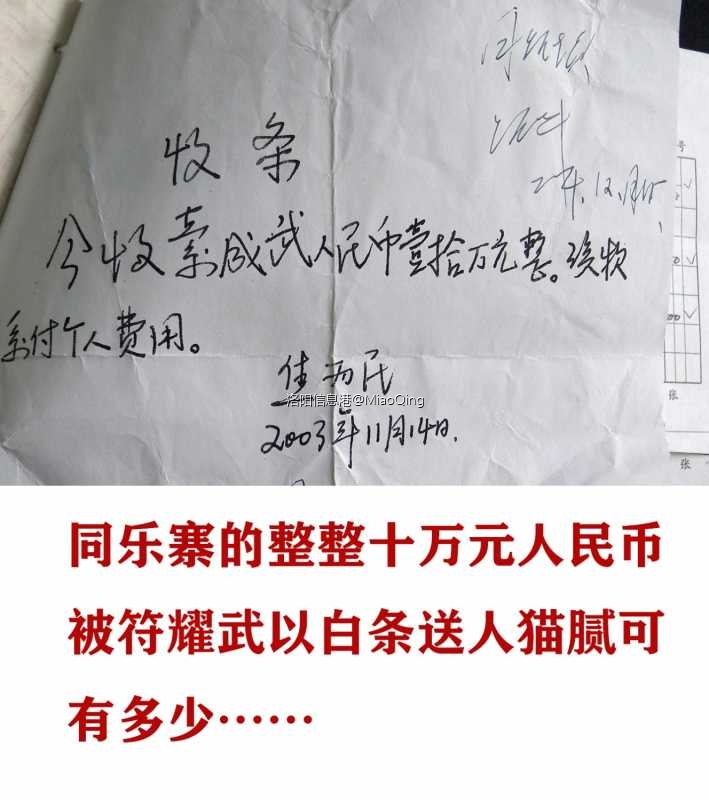 收条
今收 成武人民币壹拾万元整。该款
系付个人费用。
佳为民
洛阳信息港@MiaoQing
2003年11月14日.
号
张
张
同乐寨的整整十万元人民币
被符耀武以白条送人猫腻可
有多少……